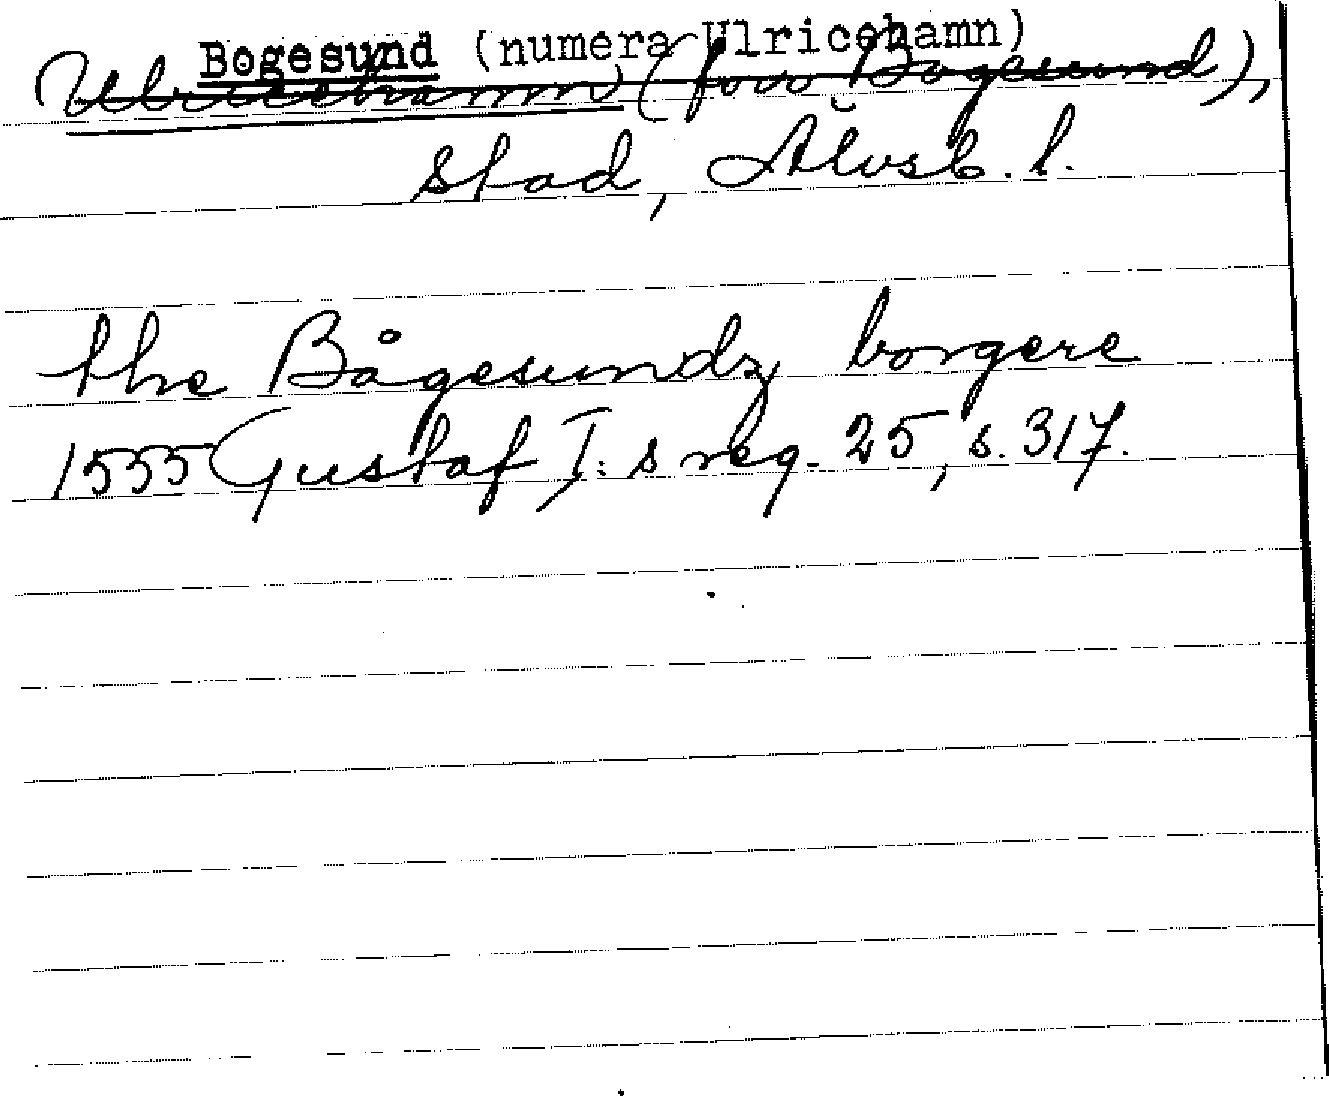 Bogesund (numera Ulricehamn)
Ulricehamn (förr Bogesund),
stad, Älvsb. l.
the Bågesundz borgere
1555 Gustaf I:s reg. 25, s. 317.